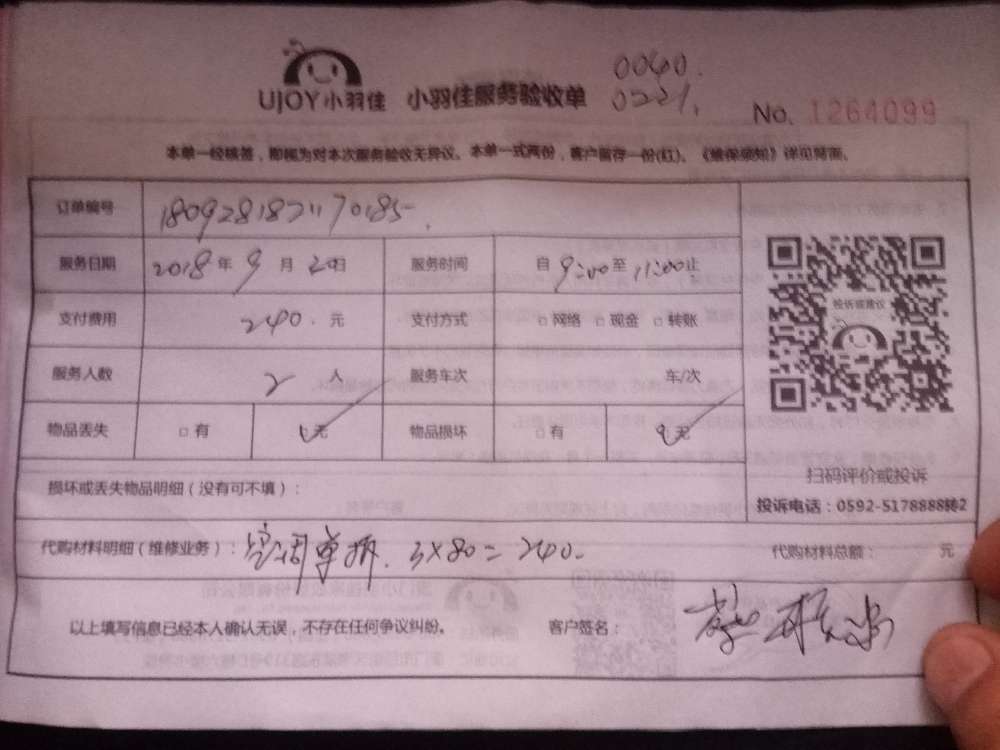 UJOY小羽佳 小羽佳服务验收单
0040.
0221.
No. 1264099
本单一经核签，即视为对本次服务验收无异议。本单一式两份，客户留存一份(红)。《维保须知》详见背面。
订单编号 180928182170185
服务日期 2018年9月20日 服务时间 自9:00至11:00止
支付费用 240.元 支付方式 □网络 □现金 □转账
服务人数 2人 服务车次 车/次
物品丢失 □有 无 物品损坏 □有 无
投诉或建议
扫码评价或投诉
投诉电话：0592-5178888转2
损坏或丢失物品明细（没有可不填）：
代购材料明细（维修业务）：空调单拆 3×80=240. 代购材料总额： 元
以上填写信息已经本人确认无误，不存在任何争议纠纷。 客户签名：